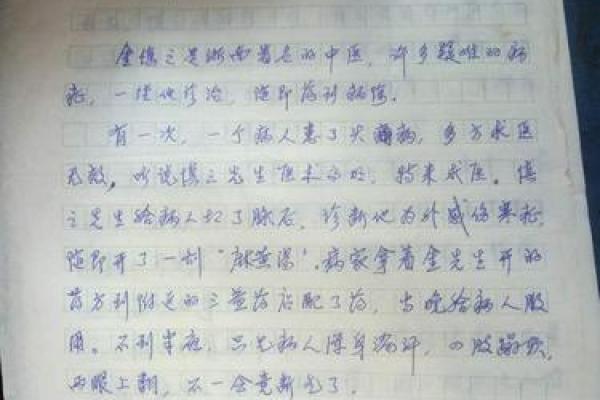 金慎之是浙南著名的中医，许多疑难的病
症，一经他诊治，随即药到病除。
有一次，一个病人患了头痛病，多方求医
无效，听说慎之先生医术高明，特来求医。慎
之先生给病人切了脉后，诊断他为外感伤寒症，
随即开了一剂“麻黄汤”。病家拿着金先生开的
药方到附近的三益药店配了药，当晚给病人服
用。不到半夜，只见病人浑身流汗，四肢蹦跳，
两眼上翻，不一会竟断气了。